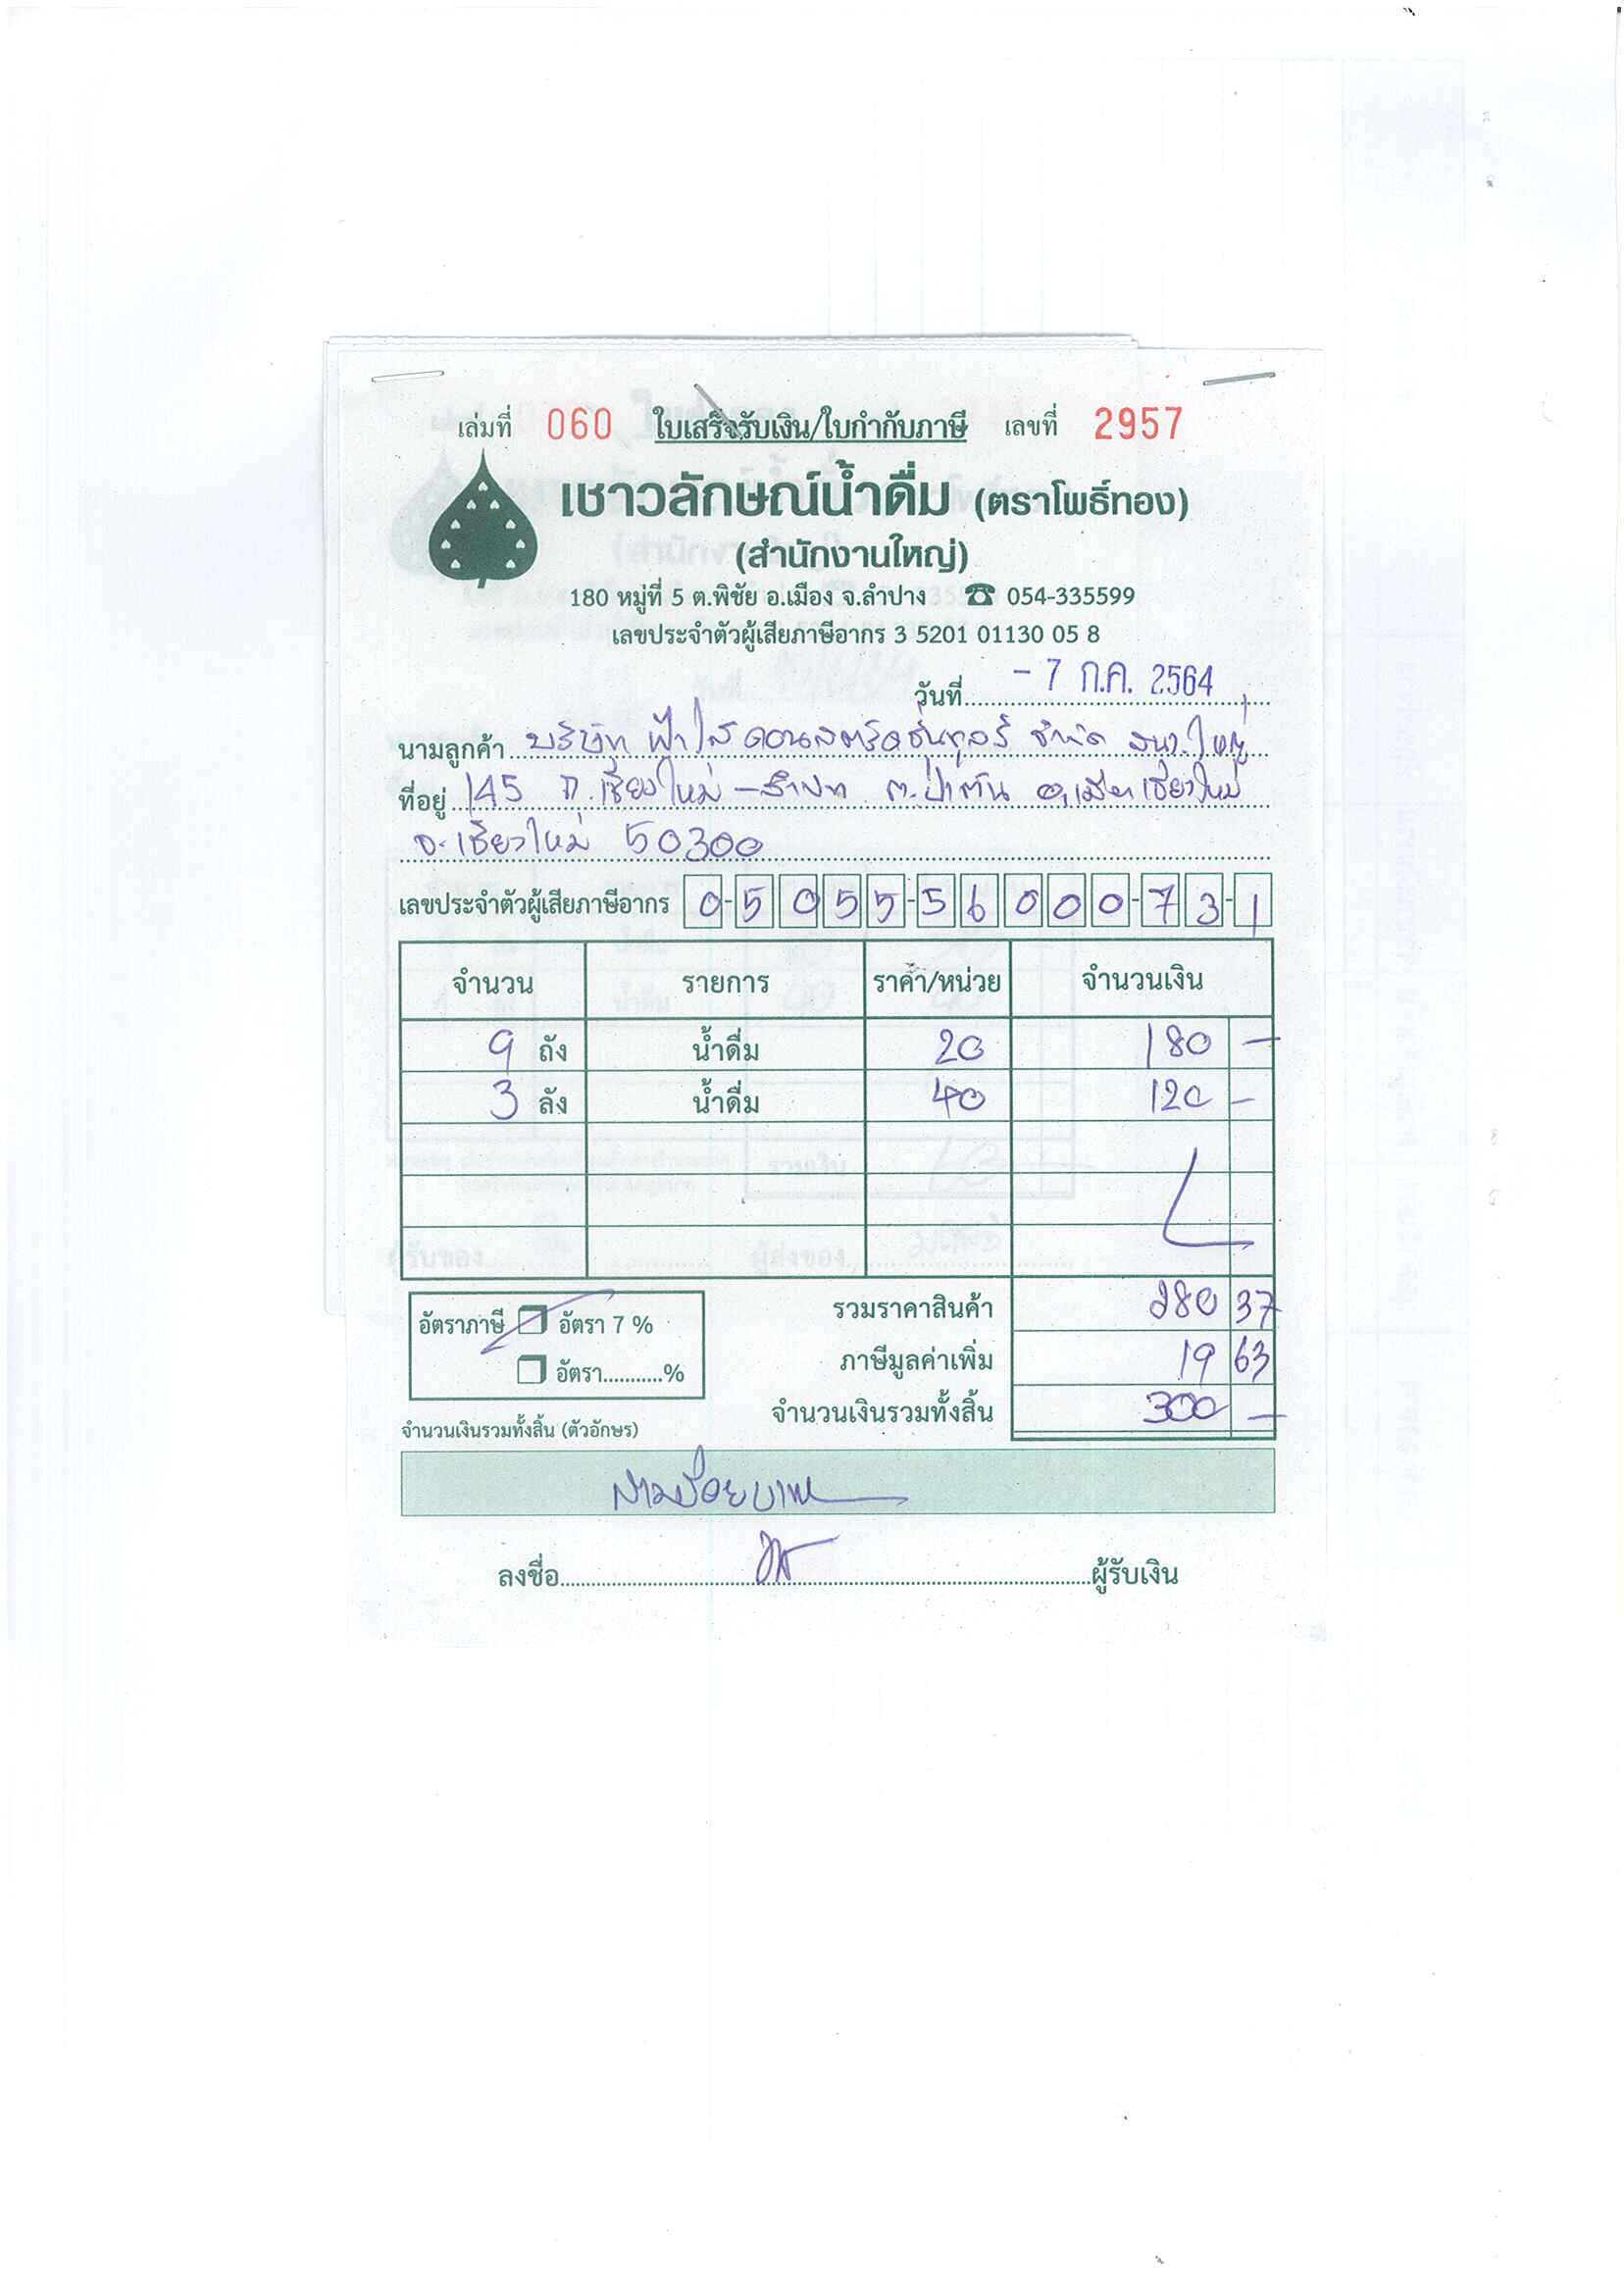 เล่มที่ 060 ใบเสร็จรับเงิน/ใบกำกับภาษี เลขที่ 2957
เชาวลักษณ์น้ำดื่ม (ตราโพธิ์ทอง)
(สำนักงานใหญ่)
180 หมู่ที่ 5 ต.พิชัย อ.เมือง จ.ลำปาง ☎ 054-335599
เลขประจำตัวผู้เสียภาษีอากร 3 5201 01130 05 8
วันที่ - 7 ก.ค. 2564
นามลูกค้า บริษัท ฟ้าใส คอนสตรัคชั่น จำกัด ใหญ่
ที่อยู่ 145 ถ.เชียงใหม่-ลำปาง ต.ป่าตัน อ.เมืองเชียงใหม่
จ.เชียงใหม่ 50300
เลขประจำตัวผู้เสียภาษีอากร 0-5055-56000-73-1
จำนวน รายการ ราคา/หน่วย จำนวนเงิน
9 ถัง น้ำดื่ม 20 180 -
3 ลัง น้ำดื่ม 40 120 -
รวมราคาสินค้า 280 37
อัตราภาษี อัตรา 7 %
ภาษีมูลค่าเพิ่ม 19 63
อัตรา...........%
จำนวนเงินรวมทั้งสิ้น 300 -
จำนวนเงินรวมทั้งสิ้น (ตัวอักษร)
สามร้อยบาท
ลงชื่อ ผู้รับเงิน